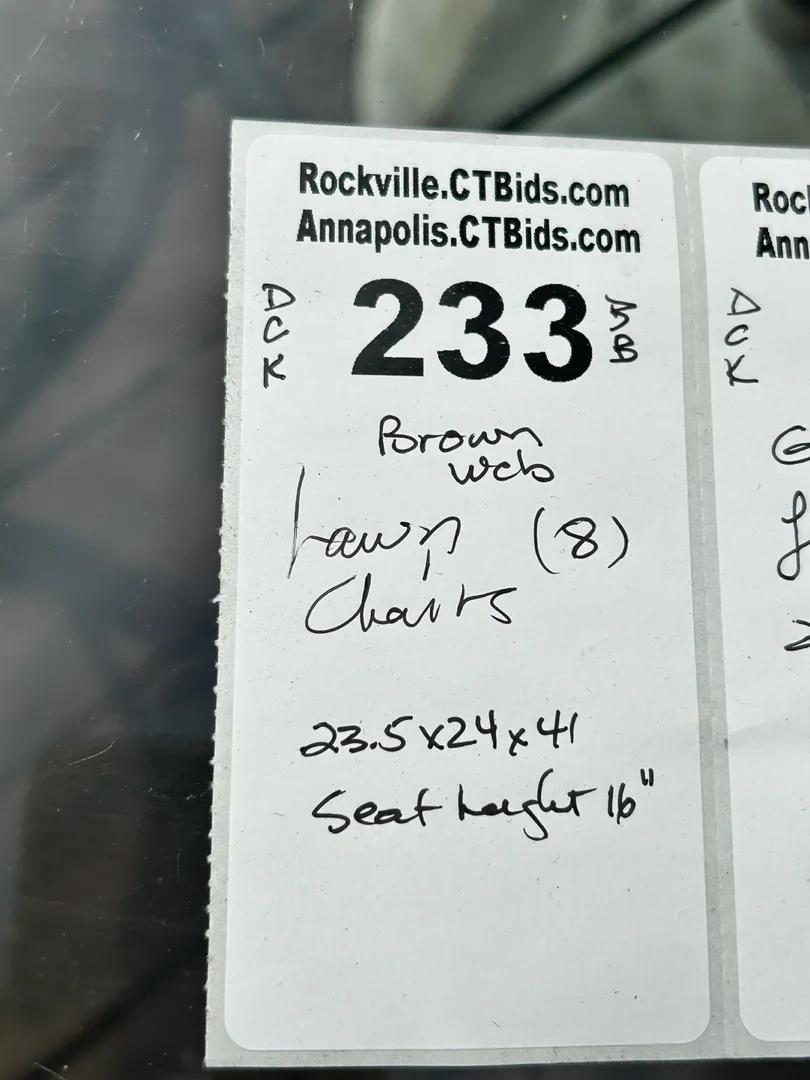 Rockville.CTBids.com
Annapolis.CTBids.com
DCK
233
Brown
Web
Lawn (8)
Chairs
23.5x24x41
Seat height 16"
Roc
Ann
DCK